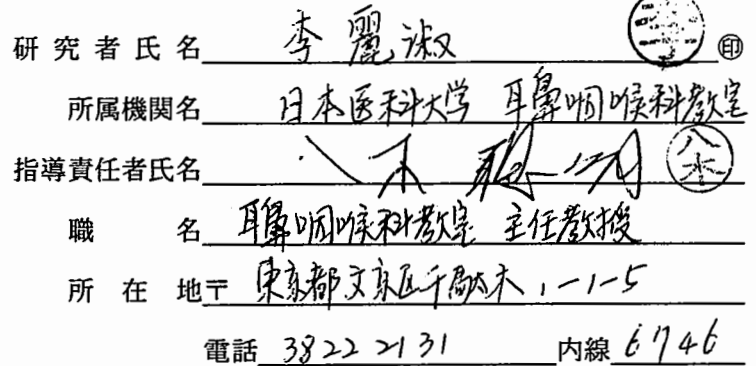 研究者氏名 李麗淑 ㊞
所属機関名 日本医科大学 耳鼻咽喉科教室
指導責任者氏名 八木 八木
職名 耳鼻咽喉科教室 主任教授
所在地〒 東京都文京区千駄木 1-1-5
電話 3822 2131 内線 6746